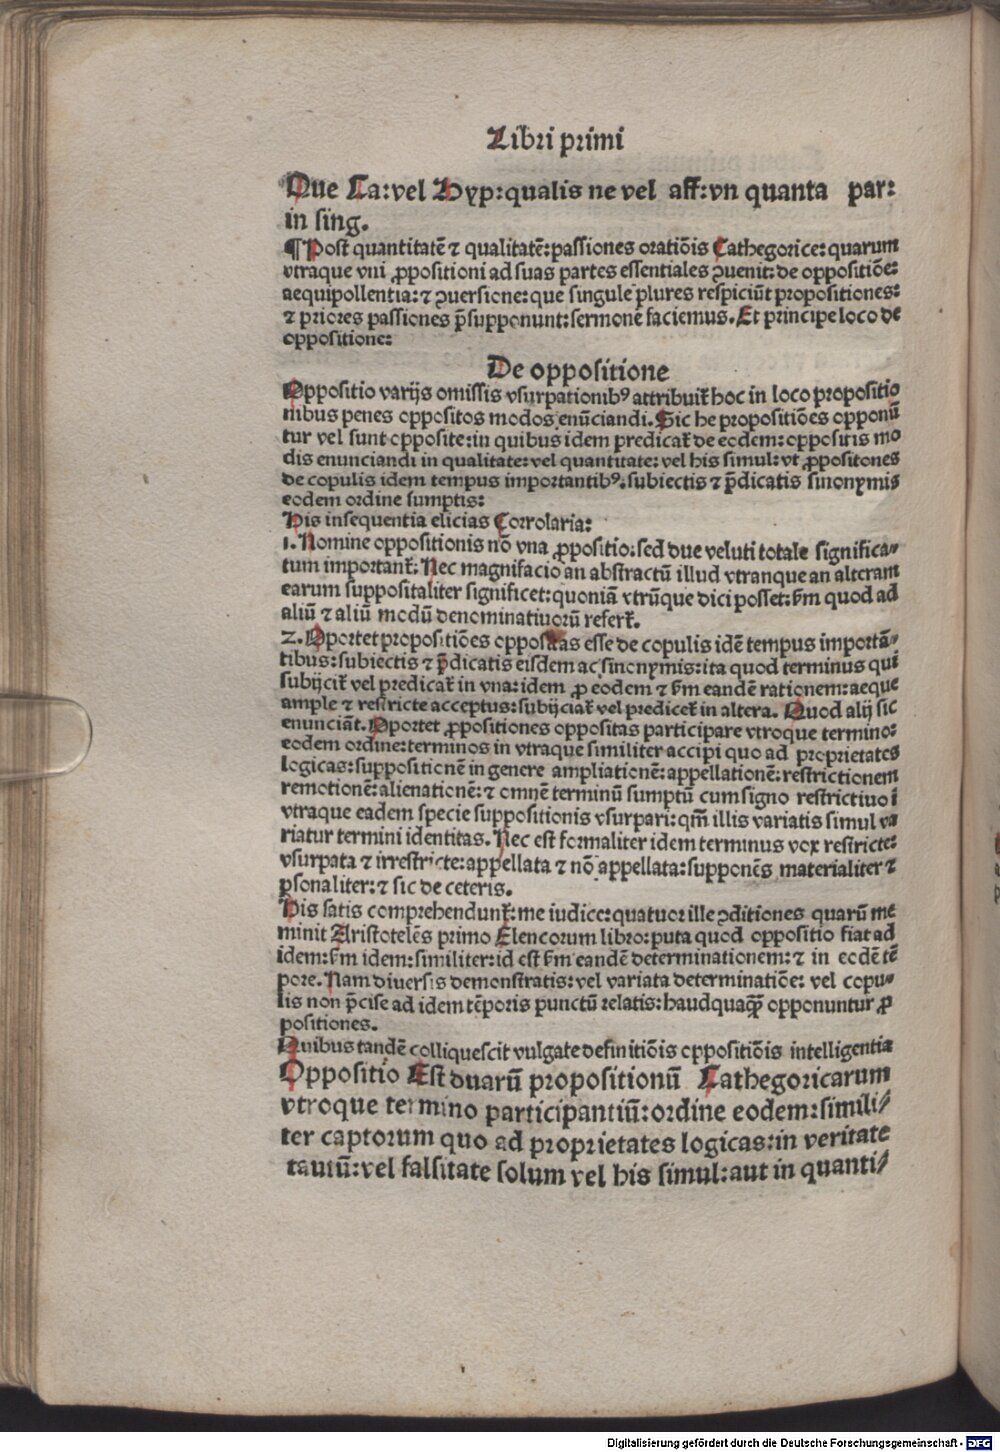 Libri primi
Que Ca:vel Hyp:qualis ne vel aff:vn quanta par:
in sing.
¶Post quantitatē ⁊ qualitatē:passiones oratiōis Cathegorice:quarum
vtraque vni ꝓpositioni ad suas partes essentiales ꝯuenit:de oppositiōe:
aequipollentia:⁊ ꝯuersione:que singule plures respiciūt propositiones:
⁊ priores passiones p̄supponunt:sermonē faciemus.Et principe loco de
oppositione:
De oppositione
Oppositio varijs omissis vsurpationibꝰ attribuit̄ hoc in loco propositio
nibus penes oppositos modos enūciandi.Sic he propositiōes opponū
tur vel sunt opposite:in quibus idem predicat̄ de eodem:oppositis mo
dis enunciandi in qualitate:vel quantitate:vel his simul:vt ꝓpositones
de copulis idem tempus importantibꝰ:subiectis ⁊ p̄dicatis sinonymis
eodem ordine sumptis:
His insequentia elicias Corrolaria:
1.Nomine oppositionis nō vna ꝓpositio:sed due veluti totale significa⸗
tum important̄:Nec magnifacio an abstractū illud vtranque an alteram
earum suppositaliter significet:quoniā vtrūque dici posset:ẜm quod ad
aliū ⁊ aliū modū denominatiuorū refert̄.
2.Oportet propositiōes oppositas esse de copulis idē tempus importā⸗
tibus:subiectis ⁊ p̄dicatis eisdem ac sinonymis:ita quod terminus qui
subijcit̄ vel predicat̄ in vna:idem ꝓ eodem ⁊ ẜm eandē rationem:aeque
ample ⁊ restricte acceptus:subijciat̄ vel predicet̄ in altera. Quod alij sic
enunciāt.Oportet ꝓpositiones oppositas participare vtroque termino:
eodem ordine:terminos in vtraque similiter accipi quo ad proprietates
logicas:suppositionē in genere ampliationē:appellationē:restrictionem
remotionē:alienationē:⁊ omnē terminū sumptū cum signo restrictiuo ī
vtraque eadem specie suppositionis vsurpari:qm̄ illis variatis simul va
riatur termini identitas.Nec est formaliter idem terminus vox restricte:
vsurpata ⁊ irrestricte:appellata ⁊ nō appellata:supponēs materialiter ⁊
ꝑsonaliter:⁊ sic de ceteris.
His satis comprehendunt̄:me iudice:quatuor ille ꝯditiones quarū me
minit Aristotelēs primo Elencorum libro:puta quod oppositio fiat ad
idem:ẜm idem:similiter:id est ẜm eandē determinationem:⁊ in eodē tē
pore.Nam diuersis demonstratis:vel variata determinatiōe: vel copu⸗
lis non p̄cise ad idem tēporis punctū relatis:haudquaqꝫ opponuntur ꝓ
positiones.
Quibus tandē colliquescit vulgate definitiōis oppositiōis intelligentia
Oppositio Est duarū propositionū Cathegoricarum
vtroque termino participantiū:ordine eodem:simili⸗
ter captorum quo ad proprietates logicas:in veritate
tantū:vel falsitate solum vel his simul:aut in quanti⸗
Digitalisierung gefördert durch die Deutsche Forschungsgemeinschaft - DFG